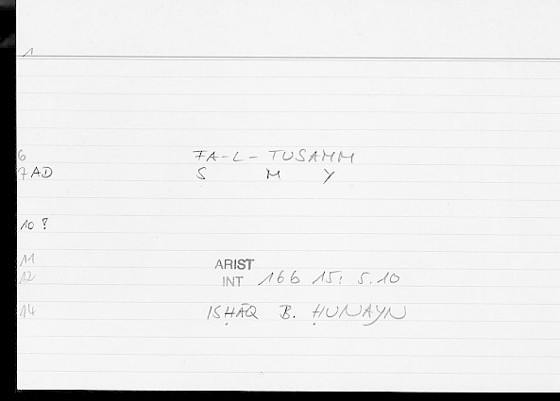 1
6 FA-L-TUSAMM
7 AD S M Y
10 ?
11 ARIST
12 INT 166 15; 5.10
14 ISḤĀQ B. ḤUNAYN